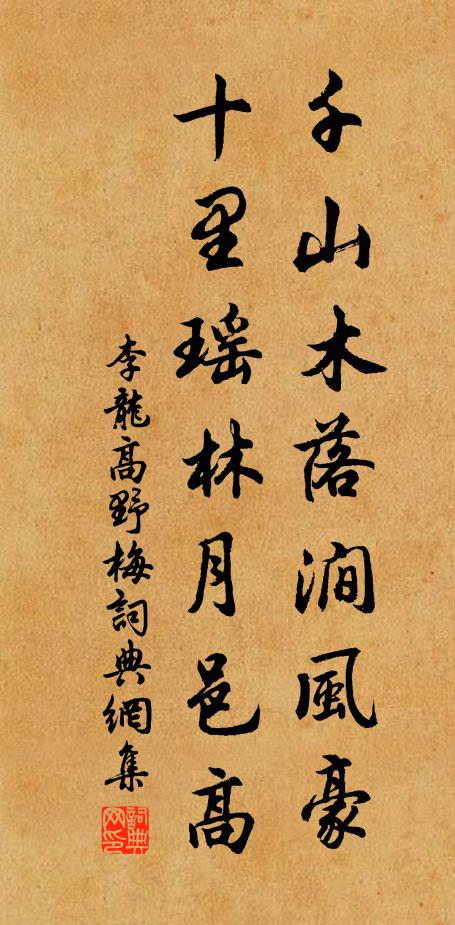 千山木落澗風豪
十里瑤林月邑高
李龍高野梅詞典網集
詞典网印